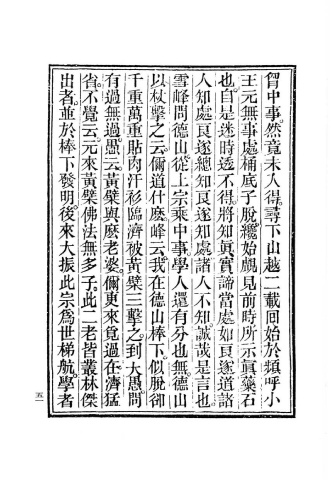 胷中事然竟未人得尋下山越二載回始於頻呼小
王元無事處桶底子脫纔始覷見前時所示眞藥石
也自是迷時透不得將知眞實諦當處如艮遂道諸
人知處艮遂總知艮遂知處諸人不知誠哉是言也
雪峰問德山從上宗乘中事學人還有分也無德山
以杖擊之云儞道什麽峰云我在德山棒下似脫卻
千重萬重貼肉汗衫臨濟被黃檗三擊之到大愚問
有過無過愚云黃檗與麽老婆儞更來覓過在濟猛
省不覺云元來黃檗佛法無多子此二老皆叢林傑
出者並於棒下發明後來大振此宗爲世梯航學者
五